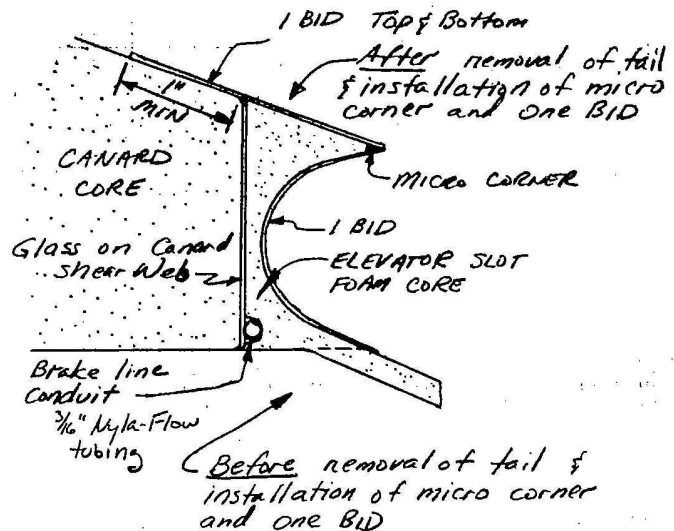 1 BID Top & Bottom
After removal of tail
& installation of micro
corner and One BID
1"
MIN
CANARD
CORE
MICRO CORNER
1 BID
Glass on Canard
shear Web
ELEVATOR SLOT
FOAM CORE
Brake line
Conduit
3/16" Nyla-Flow
tubing
Before removal of tail &
installation of micro corner
and one BID